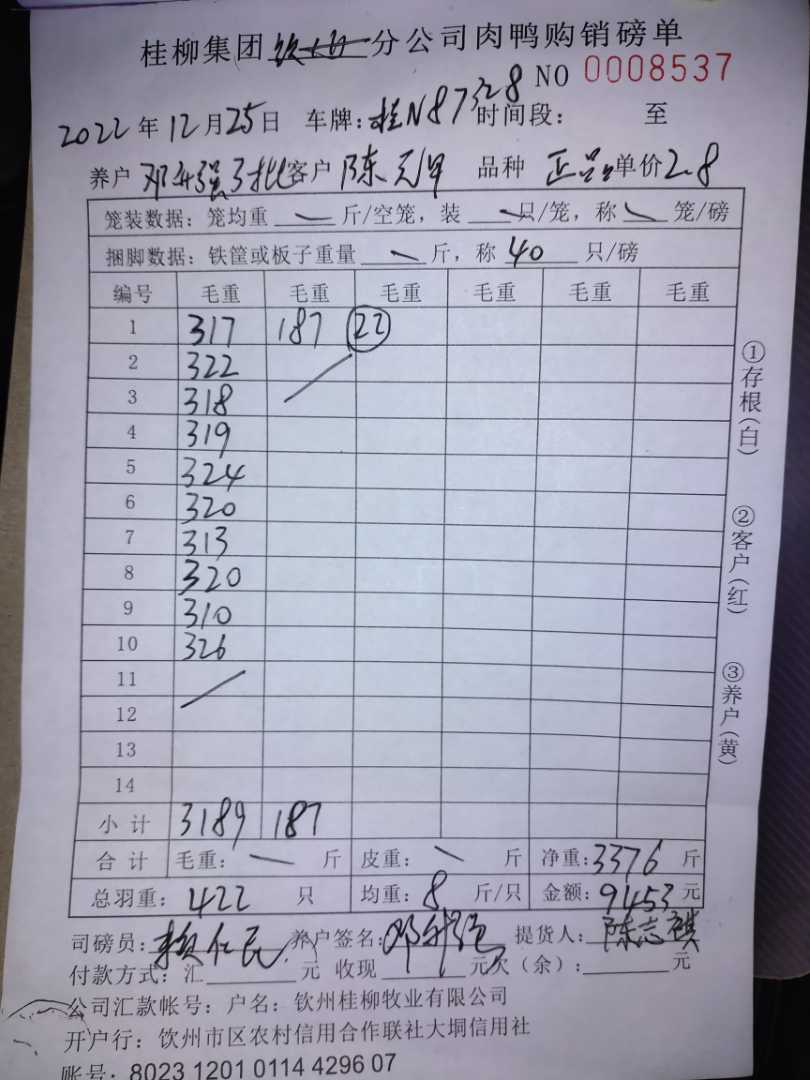 桂柳集团 分公司肉鸭购销磅单
NO 0008537
2022年12月25日 车牌:桂N87328 时间段: 至
养户 邓升强3批 客户 陈元甲 品种 正品 单价2.8
笼装数据:笼均重 — 斤/空笼,装 — 只/笼,称 — 笼/磅
捆脚数据:铁筐或板子重量 — 斤,称 40 只/磅
编号 毛重 毛重 毛重 毛重 毛重 毛重
1 317 187 22
2 322
3 318
4 319
5 324
6 320
7 313
8 320
9 310
10 326
11
12
13
14
小计 3189 187
合计 毛重: — 斤 皮重: — 斤 净重:3376 斤
总羽重: 422 只 均重: 8 斤/只 金额: 9453 元
司磅员: 仁民 养户签名: 邓升强 提货人: 陈志祺
付款方式:汇 元 收现 元欠(余): 元
公司汇款帐号:户名:钦州桂柳牧业有限公司
开户行:钦州市区农村信用合作联社大垌信用社
账号:8023 1201 0114 4296 07
①存根(白)
②客户(红)
③养户(黄)